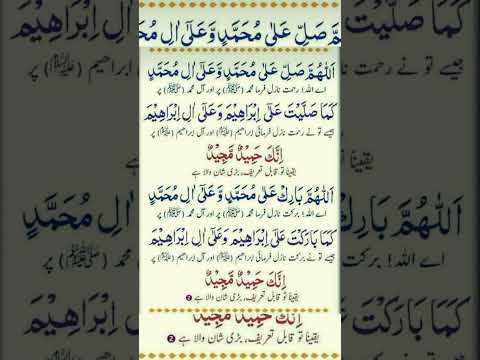 صَلِّ عَلٰى مُحَمَّدٍ وَّعَلٰٓى اٰلِ
اَللّٰهُمَّ صَلِّ عَلٰى مُحَمَّدٍ وَّعَلٰٓى اٰلِ مُحَمَّدٍ
اے اللہ! رحمت نازل فرما محمد (ﷺ) پر اور آل محمد (ﷺ) پر
كَمَا صَلَّيْتَ عَلٰٓى اِبْرَاهِيْمَ وَعَلٰٓى اٰلِ اِبْرَاهِيْمَ
جیسے تو نے رحمت نازل فرمائی ابراھیم (ﷺ) پر اور آل ابراھیم (ﷺ) پر
اِنَّكَ حَمِيْدٌ مَّجِيْدٌ
یقیناً تو قابل تعریف، بڑی شان والا ہے
اَللّٰهُمَّ بَارِكْ عَلٰى مُحَمَّدٍ وَّعَلٰٓى اٰلِ مُحَمَّدٍ
اے اللہ! برکت نازل فرما محمد (ﷺ) پر اور آل محمد (ﷺ) پر
كَمَا بَارَكْتَ عَلٰٓى اِبْرَاهِيْمَ وَعَلٰٓى اٰلِ اِبْرَاهِيْمَ
جیسے تو نے برکت نازل فرمائی ابراھیم (ﷺ) پر اور آل ابراھیم (ﷺ) پر
اِنَّكَ حَمِيْدٌ مَّجِيْدٌ
یقیناً تو قابل تعریف، بڑی شان والا ہے 2
اِنَّكَ حَمِيْدٌ مَّجِيْدٌ
یقیناً تو قابل تعریف، بڑی شان والا ہے 2